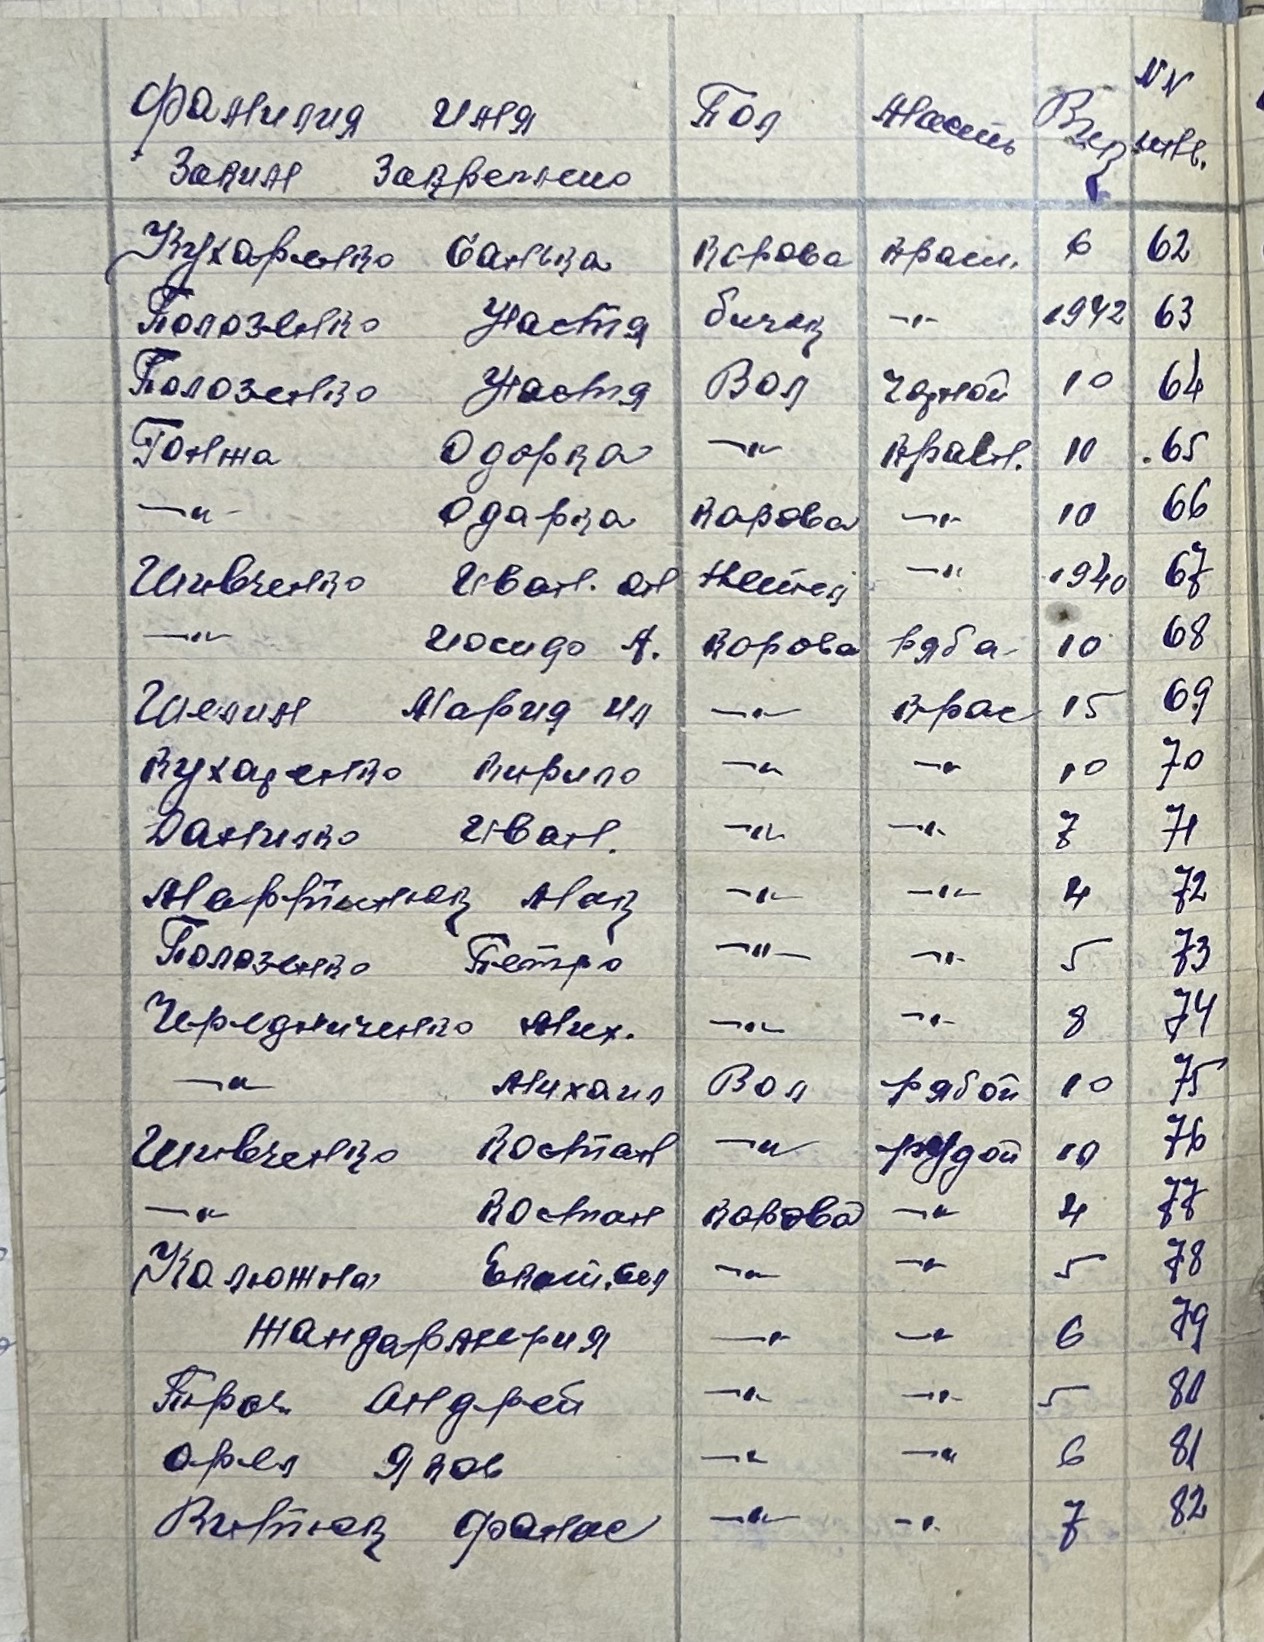 Фамилия имя Пол Масть Взр NN инв.
За ким закреплено
Кухаренко Санька корова красн. 6 62
Полозенко Настя бичек —"— 1942 63
Полозенко Настя Вол чорной 10 64
Гонжа Одорка —"— красн. 10 65
—"— Одарка карова —"— 10 66
Шивченко Иван. —"— 1940 67
—"— А. корова ряба 10 68
Шелин Мария Ил —"— крас 15 69
Кухаренко Кирило —"— —"— 10 70
Данилко Иван. —"— —"— 7 71
Мартинюк Мак —"— —"— 4 72
Полозенко Петро —"— —"— 5 73
Чередниченко Мих. —"— —"— 8 74
—"— Михаил Вол рябой 10 75
Шивченко Костан —"— рудой 10 76
—"— Костан корова —"— 4 77
Калюжна —"— —"— 5 78
Жандармерия —"— —"— 6 79
Андрей —"— —"— 5 80
Орел Яков —"— —"— 6 81
Фанас —"— —"— 7 82